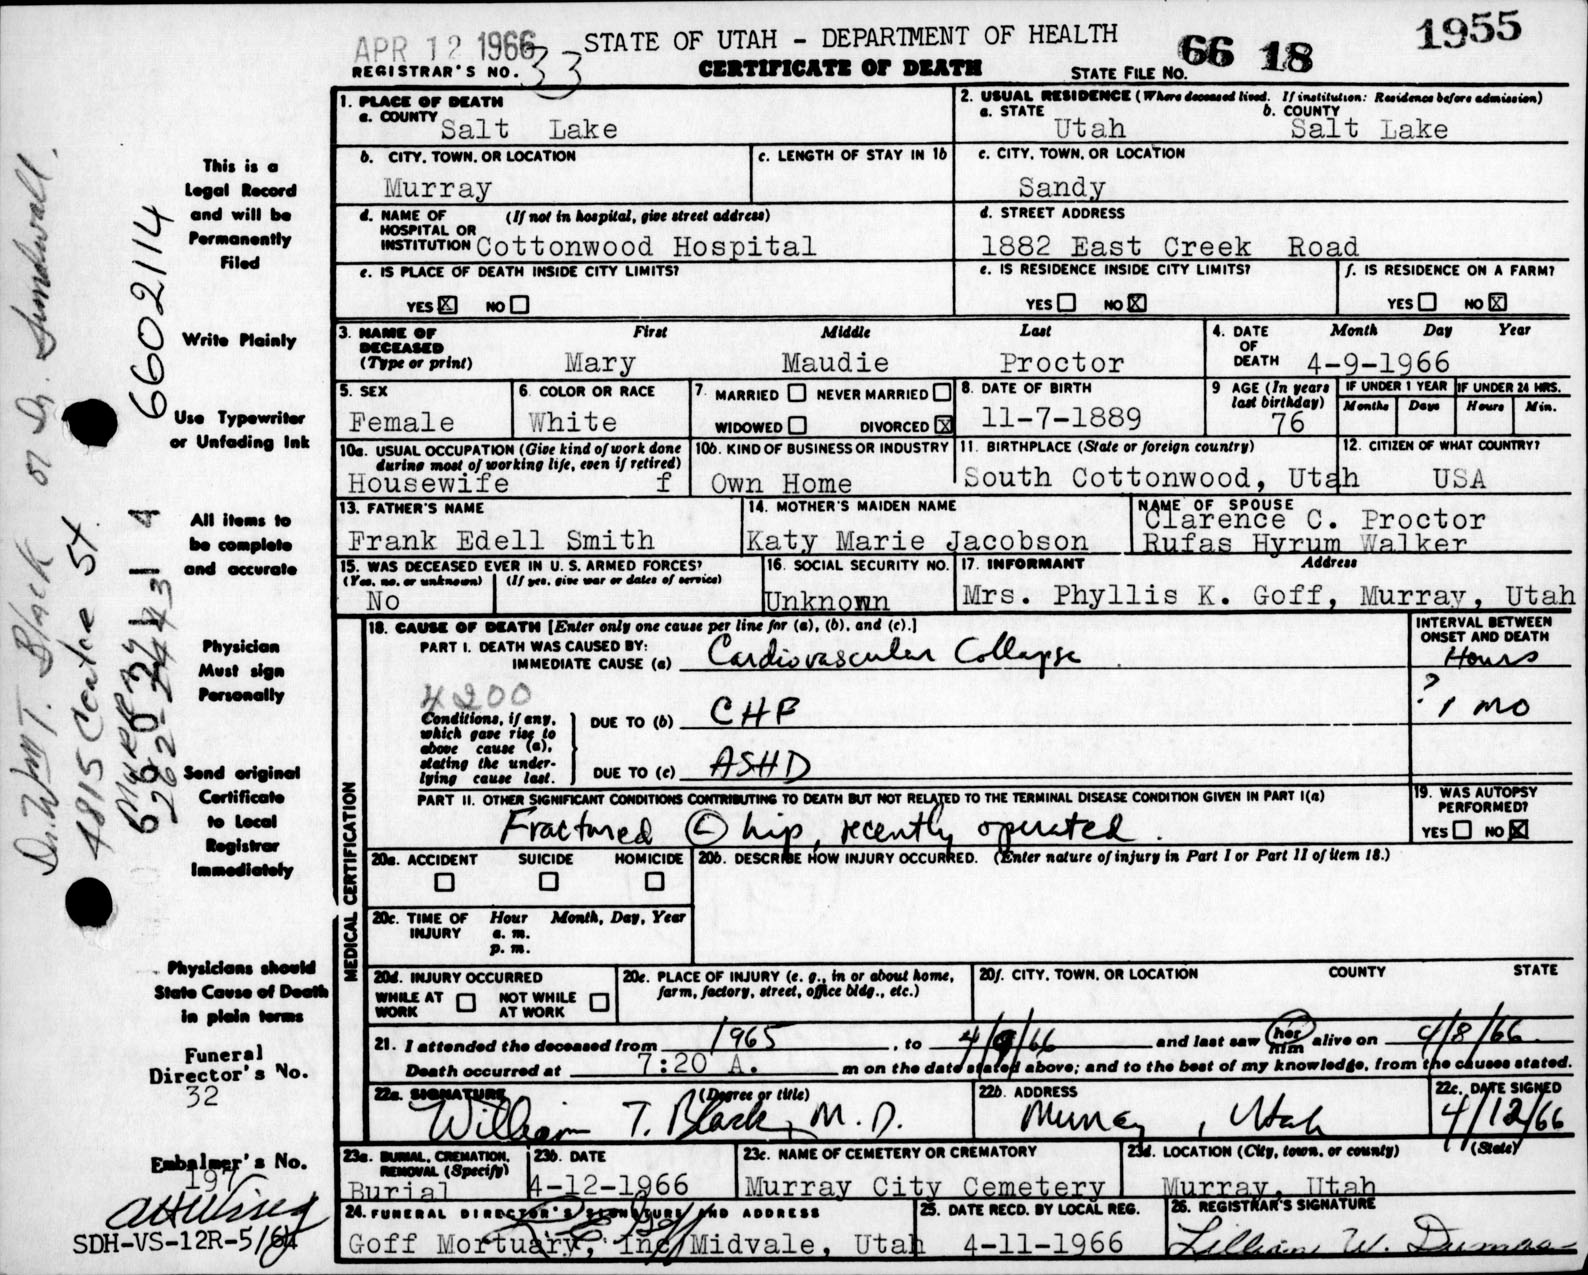 APR 12 1966
STATE OF UTAH - DEPARTMENT OF HEALTH
66 18
1955
REGISTRAR'S NO. 33
CERTIFICATE OF DEATH
STATE FILE NO.
1. PLACE OF DEATH
a. COUNTY Salt Lake
2. USUAL RESIDENCE (Where deceased lived. If institution: Residence before admission)
a. STATE Utah b. COUNTY Salt Lake
b. CITY, TOWN, OR LOCATION Murray
c. LENGTH OF STAY IN 1b
c. CITY, TOWN, OR LOCATION Sandy
d. NAME OF HOSPITAL OR INSTITUTION (If not in hospital, give street address) Cottonwood Hospital
d. STREET ADDRESS 1882 East Creek Road
e. IS PLACE OF DEATH INSIDE CITY LIMITS?
YES X NO
e. IS RESIDENCE INSIDE CITY LIMITS?
YES NO X
f. IS RESIDENCE ON A FARM?
YES NO X
3. NAME OF DECEASED (Type or print)
First Middle Last
Mary Maudie Proctor
4. DATE OF DEATH Month Day Year
4-9-1966
5. SEX Female
6. COLOR OR RACE White
7. MARRIED NEVER MARRIED
WIDOWED DIVORCED X
8. DATE OF BIRTH 11-7-1889
9 AGE (In years last birthday) 76
IF UNDER 1 YEAR Months Days
IF UNDER 24 HRS. Hours Min.
10a. USUAL OCCUPATION (Give kind of work done during most of working life, even if retired)
Housewife f
10b. KIND OF BUSINESS OR INDUSTRY
Own Home
11. BIRTHPLACE (State or foreign country)
South Cottonwood, Utah
12. CITIZEN OF WHAT COUNTRY?
USA
13. FATHER'S NAME
Frank Edell Smith
14. MOTHER'S MAIDEN NAME
Katy Marie Jacobson
NAME OF SPOUSE
Clarence C. Proctor
Rufas Hyrum Walker
15. WAS DECEASED EVER IN U. S. ARMED FORCES?
(Yes, no, or unknown) (If yes, give war or dates of service)
No
16. SOCIAL SECURITY NO.
Unknown
17. INFORMANT Address
Mrs. Phyllis K. Goff, Murray, Utah
MEDICAL CERTIFICATION
18. CAUSE OF DEATH [Enter only one cause per line for (a), (b), and (c).]
INTERVAL BETWEEN ONSET AND DEATH
PART I. DEATH WAS CAUSED BY:
IMMEDIATE CAUSE (a) Cardiovascular Collapse
Hours
4200
Conditions, if any, which gave rise to above cause (a), stating the underlying cause last.
DUE TO (b) CHF
? 1 mo
DUE TO (c) ASHD
PART II. OTHER SIGNIFICANT CONDITIONS CONTRIBUTING TO DEATH BUT NOT RELATED TO THE TERMINAL DISEASE CONDITION GIVEN IN PART I(a)
Fractured (L) hip, recently operated.
19. WAS AUTOPSY PERFORMED?
YES NO X
20a. ACCIDENT SUICIDE HOMICIDE
20b. DESCRIBE HOW INJURY OCCURRED. (Enter nature of injury in Part I or Part II of item 18.)
20c. TIME OF INJURY Hour Month, Day, Year
a. m.
p. m.
20d. INJURY OCCURRED
WHILE AT WORK NOT WHILE AT WORK
20e. PLACE OF INJURY (e. g., in or about home, farm, factory, street, office bldg., etc.)
20f. CITY, TOWN, OR LOCATION COUNTY STATE
21. I attended the deceased from 1965, to 4/9/66 and last saw her him alive on 4/8/66.
Death occurred at 7:20 A. m on the date stated above; and to the best of my knowledge, from the causes stated.
22a. SIGNATURE (Degree or title)
William T. Black, M.D.
22b. ADDRESS
Murray, Utah
22c. DATE SIGNED
4/12/66
23a. BURIAL, CREMATION, REMOVAL (Specify)
Burial
23b. DATE
4-12-1966
23c. NAME OF CEMETERY OR CREMATORY
Murray City Cemetery
23d. LOCATION (City, town, or county) (State)
Murray, Utah
24. FUNERAL DIRECTOR'S SIGNATURE AND ADDRESS
Goff Mortuary, Inc Midvale, Utah
25. DATE RECD. BY LOCAL REG.
4-11-1966
26. REGISTRAR'S SIGNATURE
Lillian W.
This is a
Legal Record
and will be
Permanently
Filed
Write Plainly
Use Typewriter
or Unfading Ink
All items to
be complete
and accurate
Physician
Must sign
Personally
Send original
Certificate
to Local
Registrar
Immediately
Physicians should
State Cause of Death
in plain terms
Funeral
Director's No.
32
Embalmer's No.
197
SDH-VS-12R-5/64
Dr. Wm T. Black or Dr. Sundwall.
4815 Center St.
Murray
262-2443
6602114